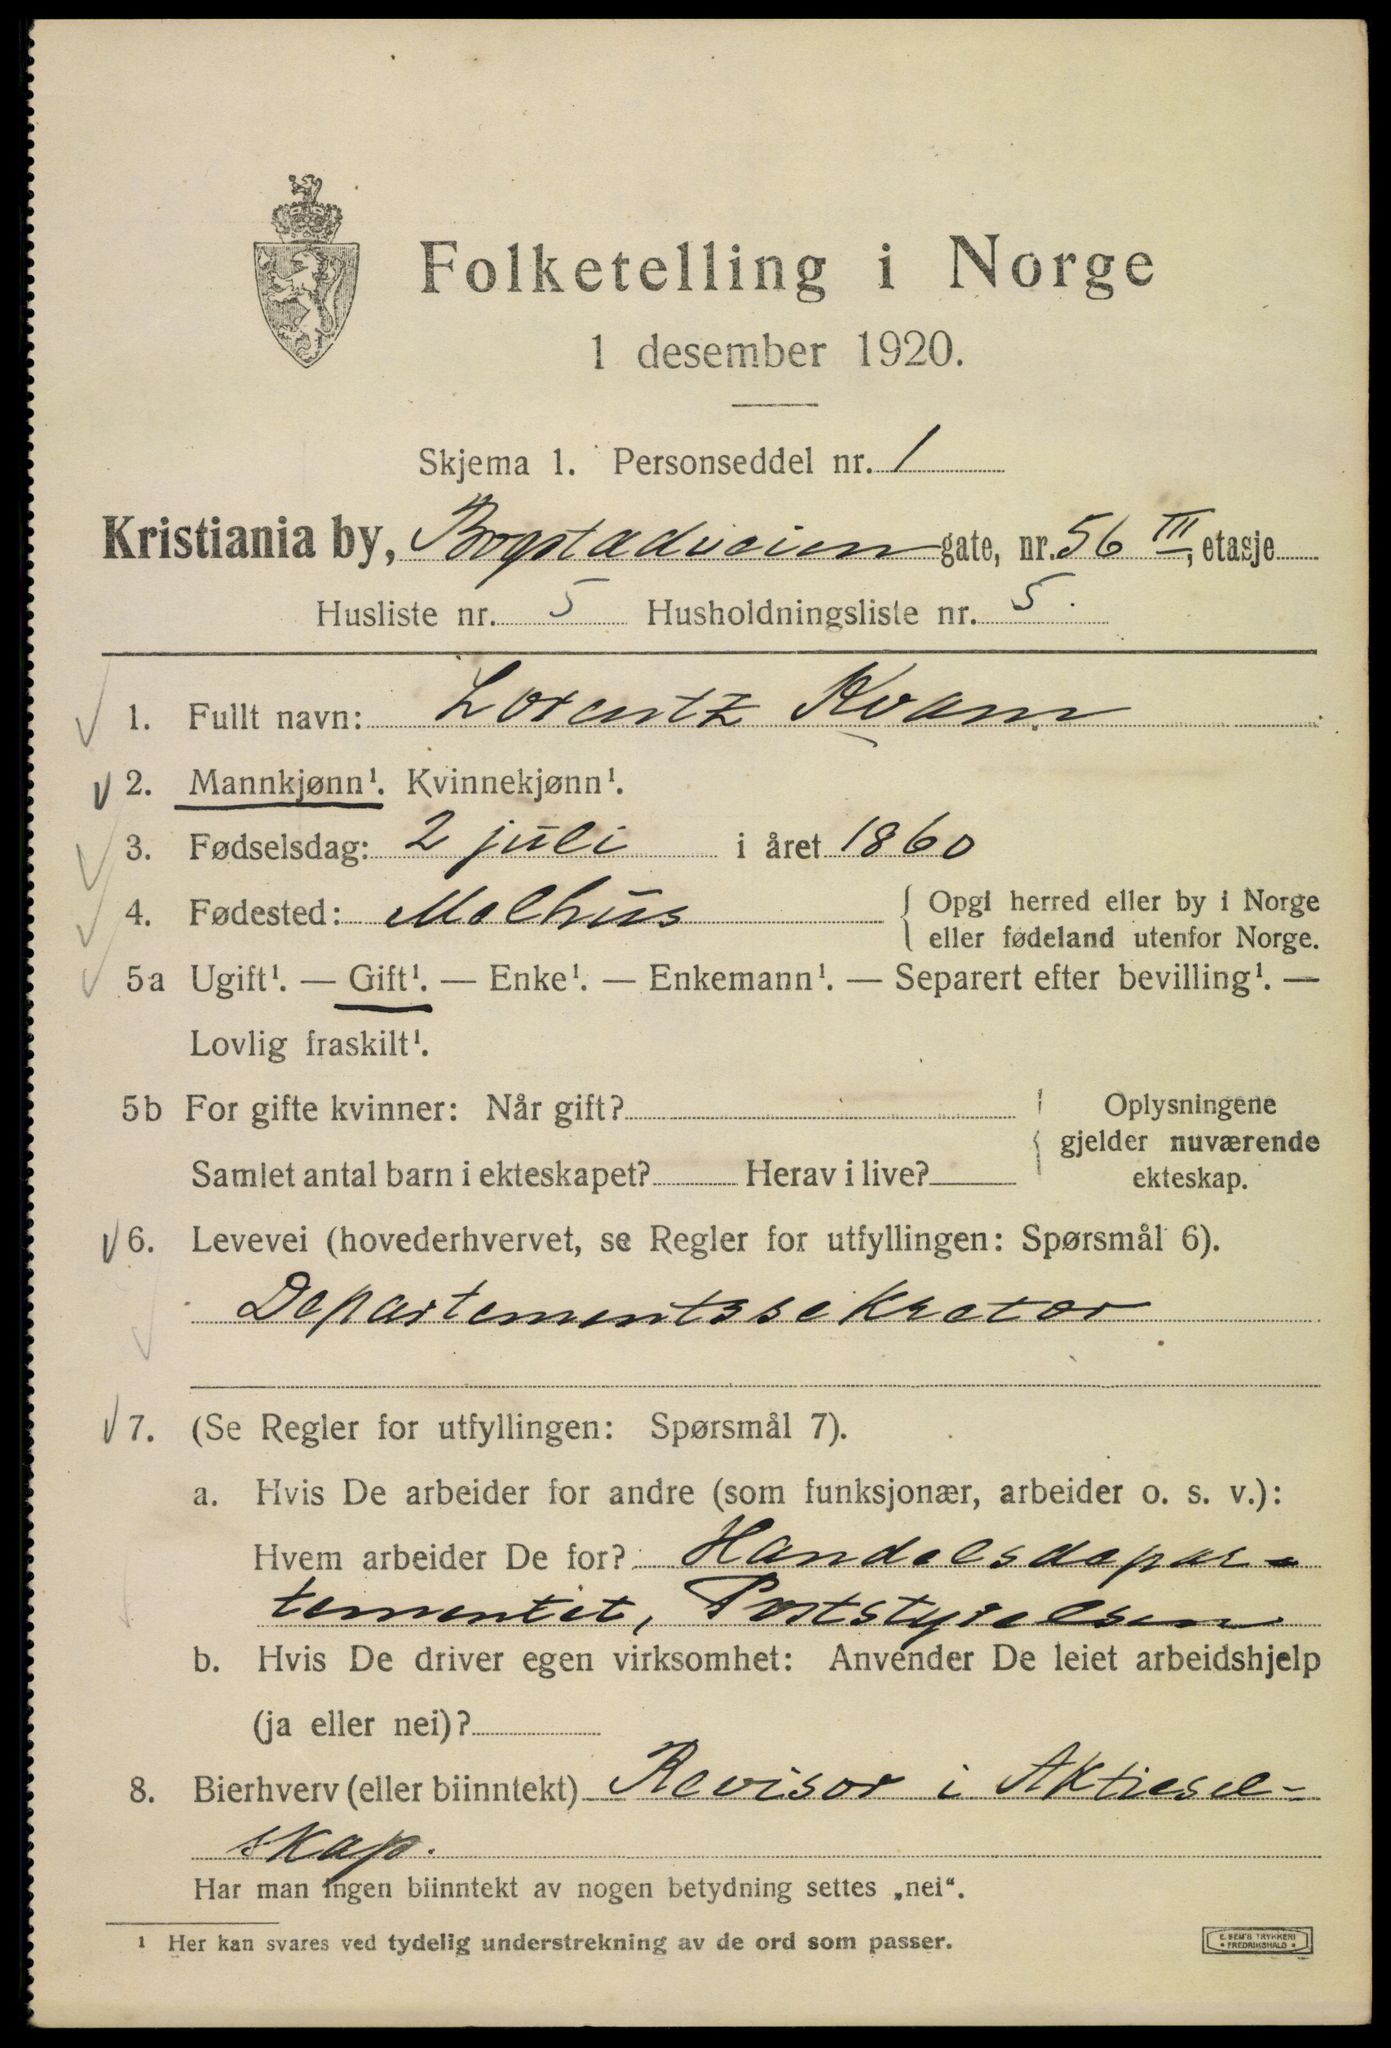 Folketelling i Norge
1 desember 1920.
Skjema 1. Personseddel nr. 1
Kristiania by, Bogstadveien gate, nr. 56 III, etasje
Husliste nr. 5 Husholdningsliste nr. 5.
1. Fullt navn: Lorentz Kvam
2. Mannkjønn¹. Kvinnekjønn¹.
3. Fødselsdag: 2 juli i året 1860
4. Fødested: Melhus { Opgi herred eller by i Norge
eller fødeland utenfor Norge.
5a Ugift¹. — Gift¹. — Enke¹. — Enkemann¹. — Separert efter bevilling¹. —
Lovlig fraskilt¹.
5b For gifte kvinner: Når gift? Oplysningene
gjelder nuværende
Samlet antal barn i ekteskapet? Herav i live? ekteskap.
6. Levevei (hovederhvervet, se Regler for utfyllingen: Spørsmål 6).
Departementssekretær
7. (Se Regler for utfyllingen: Spørsmål 7).
a. Hvis De arbeider for andre (som funksjonær, arbeider o. s. v.):
Hvem arbeider De for? Handelsdepar-
tementet, Poststyrelsen
b. Hvis De driver egen virksomhet: Anvender De leiet arbeidshjelp
(ja eller nei)?
8. Bierhverv (eller biinntekt) Revisor i Aktiesel-
skap.
Har man ingen biinntekt av nogen betydning settes „nei“.
¹ Her kan svares ved tydelig understrekning av de ord som passer.
E. SEM'S TRYKKERI
• FREDRIKSHALD •